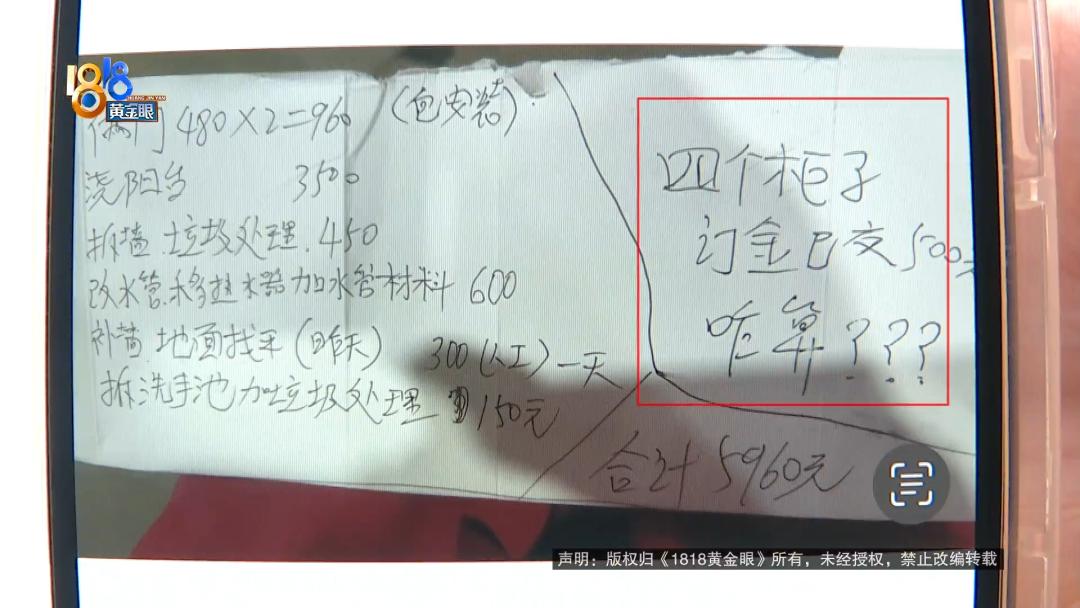 1818
黄金眼
门 480×2=960 (包安装)
浇阳台 3500
拆墙.垃圾处理.450
改水管.移热水器加水管材料 600
补墙.地面找平(昨天) 300(人工)一天
拆洗手池加垃圾处理 150元
合计 5960元
四个柜子
订金已交500元
咋算???
声明：版权归《1818黄金眼》所有，未经授权，禁止改编转载